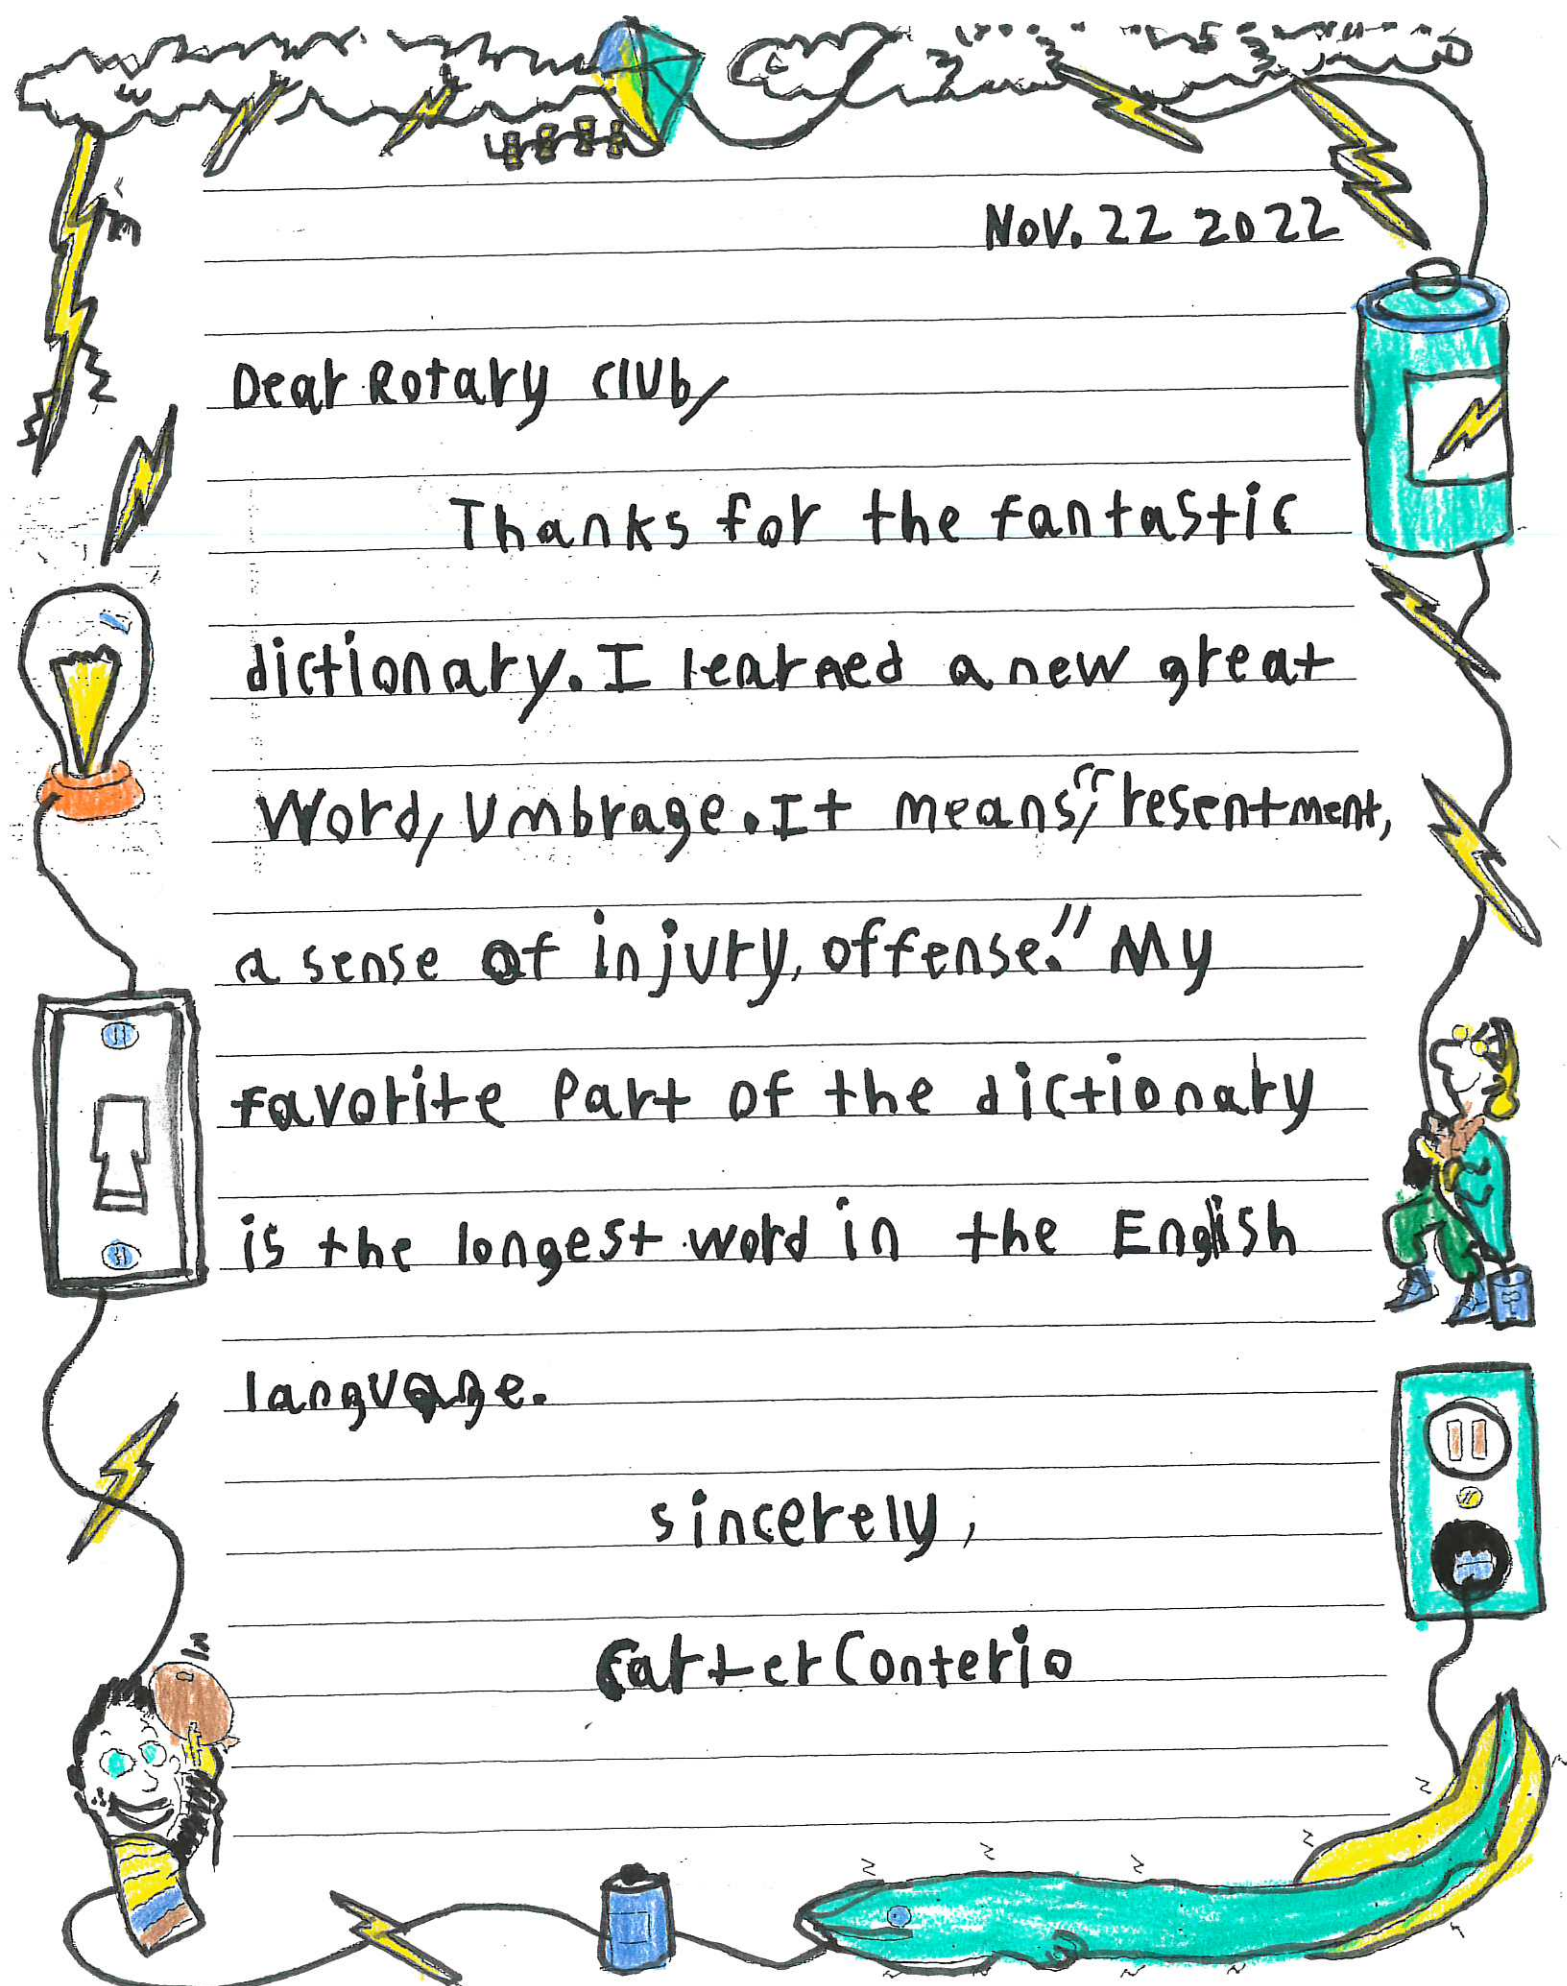 Nov. 22 2022
Dear Rotary Club,
Thanks for the fantastic
dictionary. I learned a new great
Word, Umbrage. It means, "resentment,
a sense of injury, offense." My
favorite Part of the dictionary
is the longest word in the English
language.
sincerely,
Carter Conterio